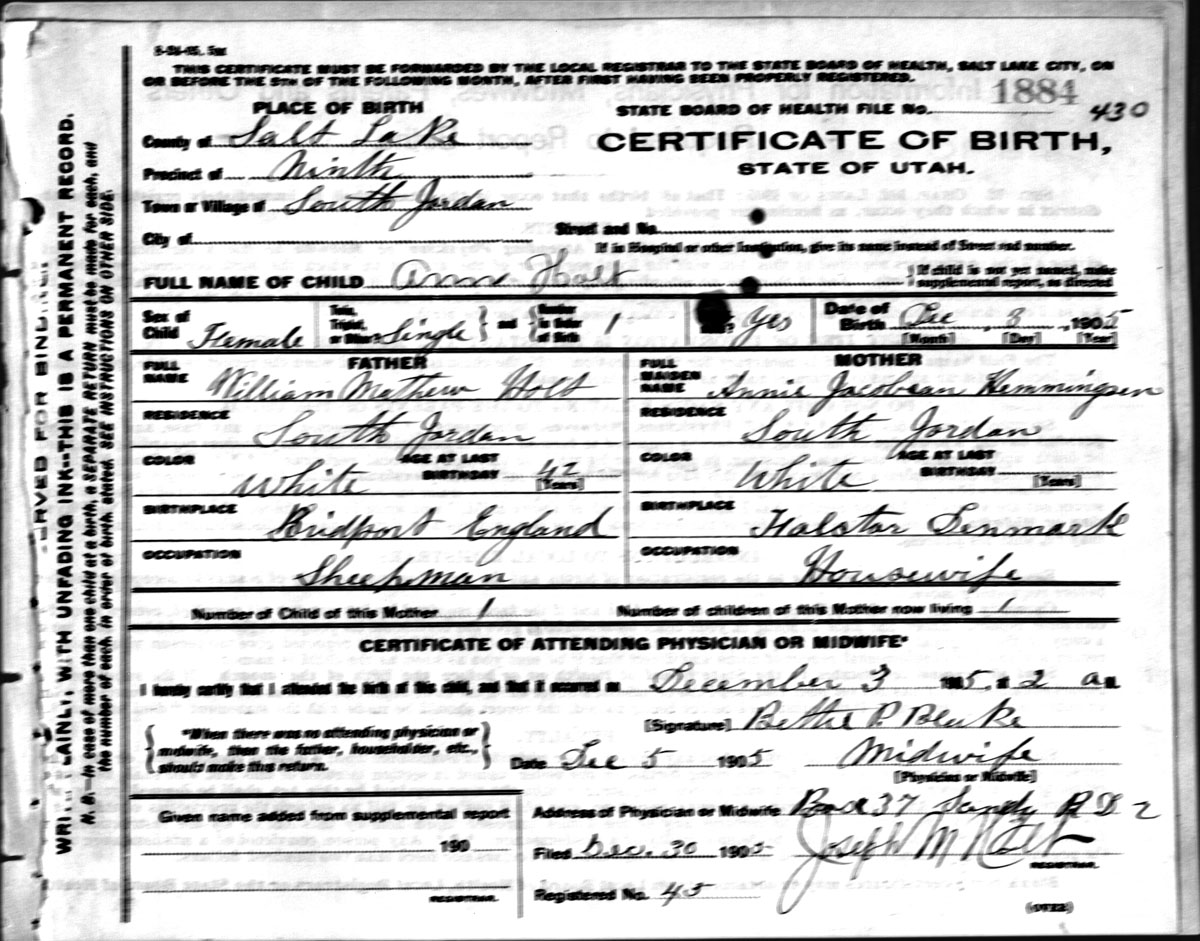 THIS CERTIFICATE MUST BE FORWARDED BY THE LOCAL REGISTRAR TO THE STATE BOARD OF HEALTH, SALT LAKE CITY, ON
OR BEFORE THE 5TH OF THE FOLLOWING MONTH, AFTER FIRST HAVING BEEN PROPERLY REGISTERED.
PLACE OF BIRTH
STATE BOARD OF HEALTH FILE No. 1884 430
County of Salt Lake
CERTIFICATE OF BIRTH,
Precinct of Ninth
STATE OF UTAH.
Town or Village of South Jordan
City of
Street and No.
If in Hospital or other Institution, give its name instead of Street and number.
FULL NAME OF CHILD Ann Holt
If child is not yet named, make
supplemental report, as directed
Sex of Child Female
Twin, Triplet, or Other? Single
and Number in Order of Birth 1
Yes
Date of Birth Dec 3, 1905
[Month] [Day] [Year]
FATHER
FULL NAME William Mathew Holt
RESIDENCE South Jordan
COLOR White
AGE AT LAST BIRTHDAY 42
[Years]
BIRTHPLACE Bridport England
OCCUPATION Sheepman
MOTHER
FULL MAIDEN NAME Annie Hemmingsen
RESIDENCE South Jordan
COLOR White
AGE AT LAST BIRTHDAY
[Years]
BIRTHPLACE Denmark
OCCUPATION Housewife
Number of Child of this Mother 1
Number of children of this Mother now living 1
CERTIFICATE OF ATTENDING PHYSICIAN OR MIDWIFE*
I hereby certify that I attended the birth of this child, and that it occurred on December 3 1905, at 2 a m
*When there was no attending physician or
midwife, then the father, householder, etc.,
should make this return.
[Signature] Bettie P. Beuke
Date Dec 5 1905
Midwife
[Physician or Midwife]
Given name added from supplemental report
190
REGISTRAR.
Address of Physician or Midwife Box 37 Sandy R D 2
Filed Dec. 30 1905
Joseph M Holt
REGISTRAR.
Registered No. 45
(OVER)
RVED FOR BINDING
WRITE PLAINLY, WITH UNFADING INK--THIS IS A PERMANENT RECORD.
N. B.--In case of more than one child at a birth, a SEPARATE RETURN must be made for each, and
the number of each, in order of birth, stated. SEE INSTRUCTIONS ON OTHER SIDE.